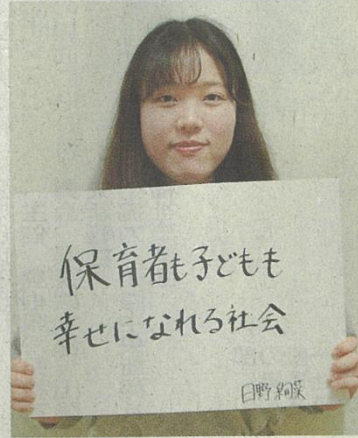 保育者も子どもも
幸せになれる社会
日野 絢葉